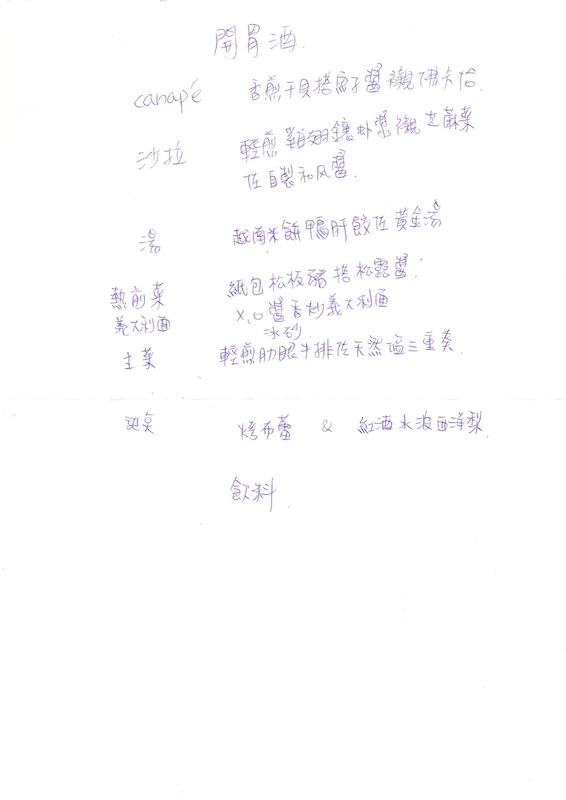 開胃酒.
canapé 香煎干貝搭魚子醬襯佛卡恰.
沙拉 輕煎雞翅鑲 襯芝麻菜
佐自製和风醬.
湯 越南米餅鴨肝餃佐黃金湯
熱前菜 紙包松板豬搭松露醬.
義大利面 X.O醬香炒義大利面
冰砂
主菜 輕煎肋眼牛排佐天然塩三重奏.
甜點 烤布蕾 & 紅酒水波西洋梨.
飲料